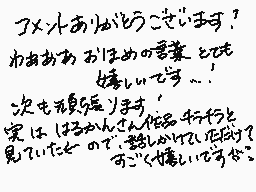 コメントありがとうございます!
わぁぁぁ おほめの言葉 とても
嬉しいです…!
次も頑張ります!
実は はるかんさん作品 チラチラと
見ていたので、話しかけていただけて
すごく嬉しいですが…